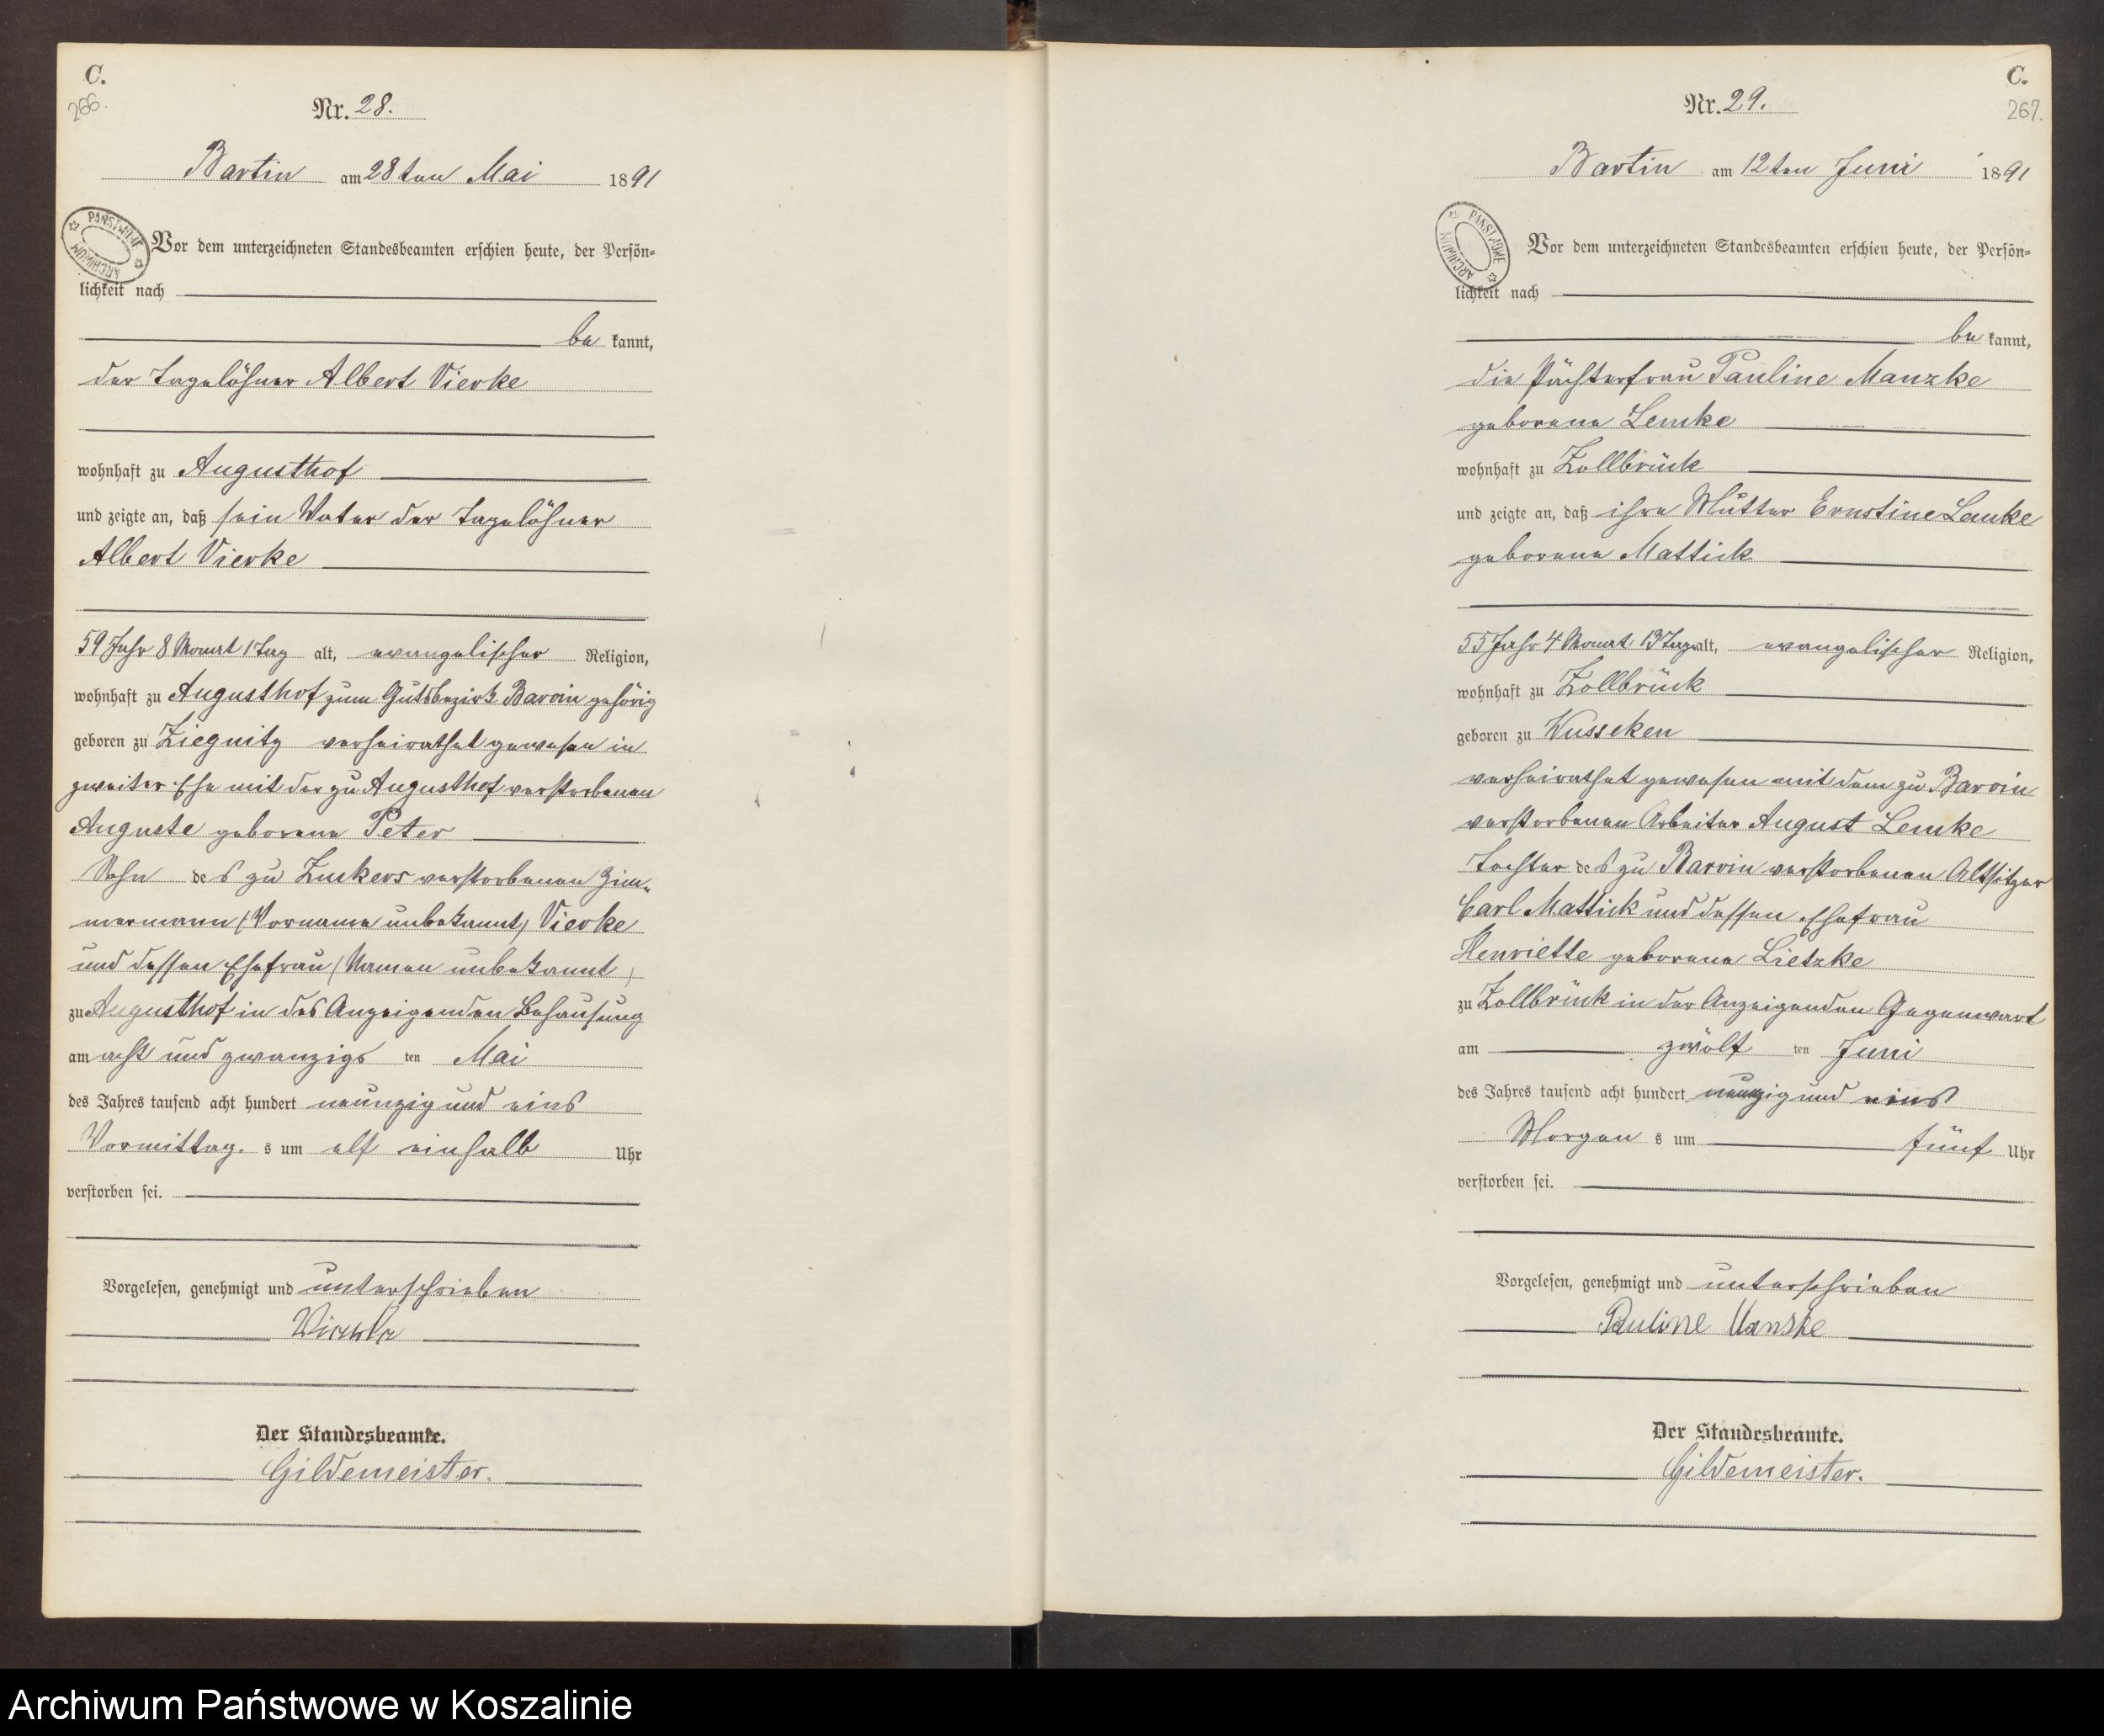 C.
266.
Nr. 28.
Bartin am 28ten Mai 1891
PAŃSTWOWE ARCHIWUM
Vor dem unterzeichneten Standesbeamten erschien heute, der Persön-
lichkeit nach
bekannt,
der Tagelöhner Albert Vierke
wohnhaft zu Augusthof
und zeigte an, daß sein Vater der Tagelöhner
Albert Vierke
59 Jahr 8 Monat 1 Tag alt, evangelischer Religion,
wohnhaft zu Augusthof zum Gutsbezirk Barvin gehörig
geboren zu Ziegnitz verheirathet gewesen in
zweiter Ehe mit der zu Augusthof verstorbenen
Auguste geborene Peter
Sohn des zu Zuckers verstorbenen Zim-
mermann (Vorname unbekannt) Vierke
und dessen Ehefrau (Namen unbekannt)
zu Augusthof in des Anzeigenden Behausung
am acht und zwanzigsten Mai
des Jahres tausend acht hundert neunzig und eins
Vormittags um elf einhalb Uhr
verstorben sei.
Vorgelesen, genehmigt und unterschrieben
Vierke
Der Standesbeamte.
Gildemeister.
C.
267.
Nr. 29.
Bartin am 12ten Juni 1891
PAŃSTWOWE ARCHIWUM
Vor dem unterzeichneten Standesbeamten erschien heute, der Persön-
lichkeit nach
bekannt,
die Pächterfrau Pauline Manzke
geborene Lemke
wohnhaft zu Zollbrück
und zeigte an, daß ihre Mutter Ernstine Lemke
geborene Mattick
55 Jahr 4 Monat 13 Tage alt, evangelischer Religion,
wohnhaft zu Zollbrück
geboren zu Wusseken
verheirathet gewesen mit dem zu Barvin
verstorbenen Arbeiter August Lemke
Tochter des zu Barvin verstorbenen Altsitzer
Carl Mattick und dessen Ehefrau
Henriette geborene Lietzke
zu Zollbrück in der Anzeigenden Gegenwart
am zwölften Juni
des Jahres tausend acht hundert neunzig und eins
Morgens um fünf Uhr
verstorben sei.
Vorgelesen, genehmigt und unterschrieben
Pauline Manske
Der Standesbeamte.
Gildemeister.
Archiwum Państwowe w Koszalinie